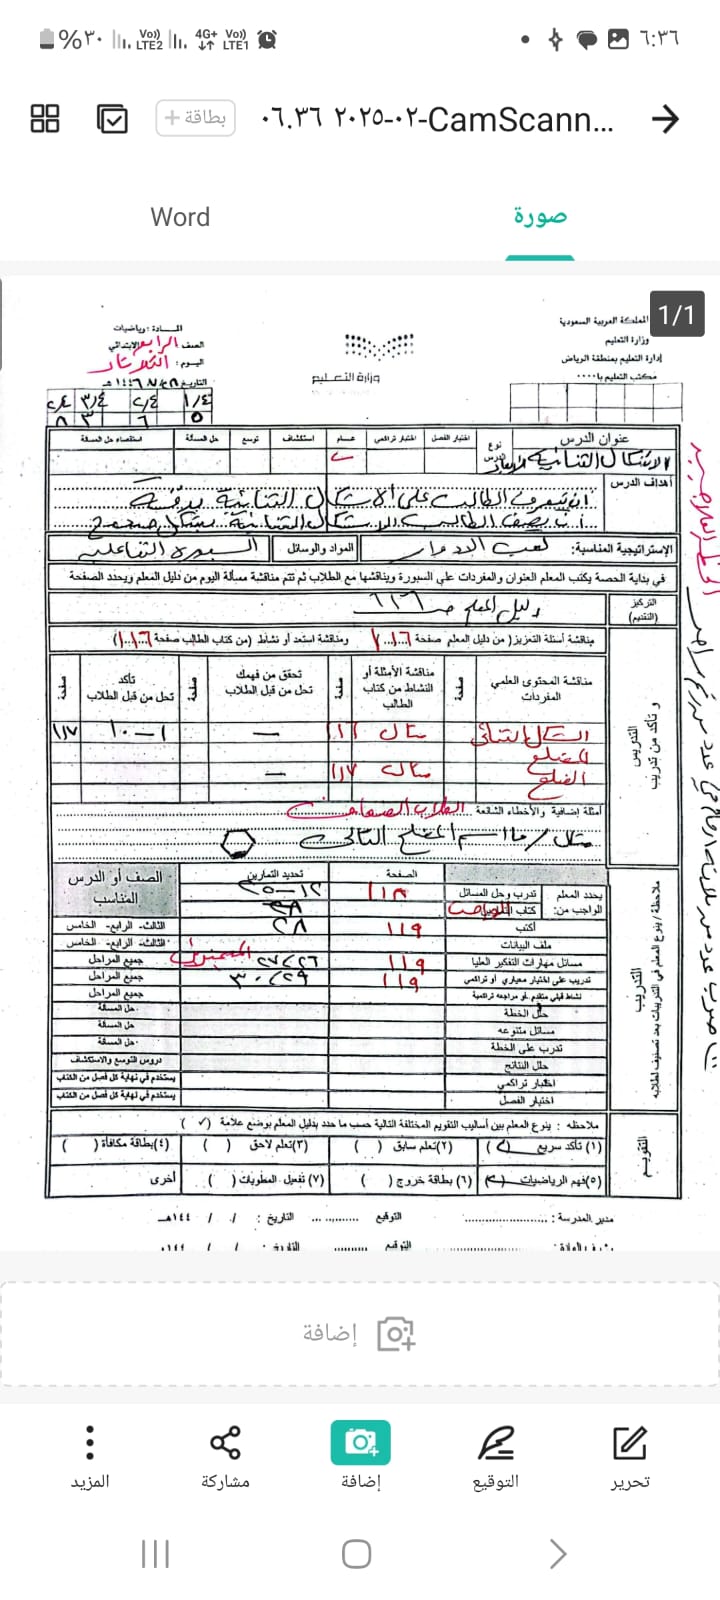 ٦:٣٦
4G+ Vo)) LTE1 Vo)) LTE2 ٣٠%
CamScann...-٠٢-٢٠٢٥ ٠٦.٣٦
بطاقة +
صورة
Word
1/1
المملكة العربية السعودية
وزارة التعليم
إدارة التعليم بمنطقة الرياض
مكتب التعليم با٠٠٠٠
وزارة التعليم
المادة : رياضيات
الصف الرابع الابتدائي
اليوم : الثلاثاء
التاريخ ١٤٤٦ هـ
١/٤ ٢/٤ ٣/٤ ٤/٤
٥ ٦ ٣ ٨
عنوان الدرس
الأشكال الثنائية الأبعاد
نوع الدرس
اختبار الفصل
اختبار تراكمي
عام
استكشاف
توسع
حل المسألة
استقصاء حل المسألة
أهداف الدرس
أن يتعرف الطالب على الأشكال الثنائية بدقة
أن يصف الطالب الأشكال الثنائية بشكل صحيح
الإستراتيجية المناسبة: لعب الأدوار
المواد والوسائل السبورة التفاعلية
في بداية الحصة يكتب المعلم العنوان والمفردات علي السبورة ويناقشها مع الطلاب ثم تتم مناقشة مسألة اليوم من دليل المعلم ويحدد الصفحة
التركيز (التقديم)
دليل المعلم ص ١١٦
مناقشة أسئلة التعزيز( من دليل المعلم صفحة ١١٦
ومناقشة استعد أو نشاط (من كتاب الطالب صفحة ١١٦)
التدريس
و تأكد من تدريب
مناقشة المحتوى العلمي المفردات
صفحة
مناقشة الأمثلة أو النشاط من كتاب الطالب
صفحة
تحقق من فهمك تحل من قبل الطلاب
صفحة
تأكد تحل من قبل الطلاب
صفحة
الشكل الثنائي مثال ١١٦ — ١-١٠ ١١٧
المضلع
الضلع مثال ١١٧ —
أمثلة إضافية والأخطاء الشائعة الطلاب الضعاف
مثال / ما اسم المضلع التالي
التدريب
ملاحظة / ينوع المعلم في التدريبات بعد تصنيف لطلابه
يحدد المعلم الواجب من:
الصفحة
تحديد التمارين
الصف أو الدرس المناسب
تدرب وحل المسائل ١١٨ ١٢-٢٥
أكتب ١١٩ ٢٨ الثالث- الرابع- الخامس
ملف البيانات الثالث- الرابع- الخامس
مسائل مهارات التفكير العليا ١١٩ ٢٦، ٢٧ جميع المراحل
تدريب على اختبار معياري أو تراكمي ١١٩ ٢٩، ٣٠ جميع المراحل
نشاط قبلي متقدم أو مراجعة تراكمية جميع المراحل
حلل الخطة حل المسألة
مسائل متنوعة حل المسألة
تدرب على الخطة حل المسألة
حلل النتائج دروس التوسع والاستكشاف
اختبار تراكمي يستخدم في نهاية كل فصل من الكتاب
اختبار الفصل يستخدم في نهاية كل فصل من الكتاب
التقويم
ملاحظه : ينوع المعلم بين أساليب التقويم المختلفة التالية حسب ما حدد بدليل المعلم بوضع علامة (✓)
(١) تأكد سريع (✓) (٢)تعلم سابق ( ) (٣)تعلم لاحق ( ) (٤)بطاقة مكافأة( )
(٥)فهم الرياضيات (✓) (٦) بطاقة خروج( ) (٧) تفعيل المطويات( ) أخرى
مدير المدرسة : التوقيع التاريخ : / / ١٤٤هـ
إضافة
تحرير
التوقيع
إضافة
مشاركة
المزيد